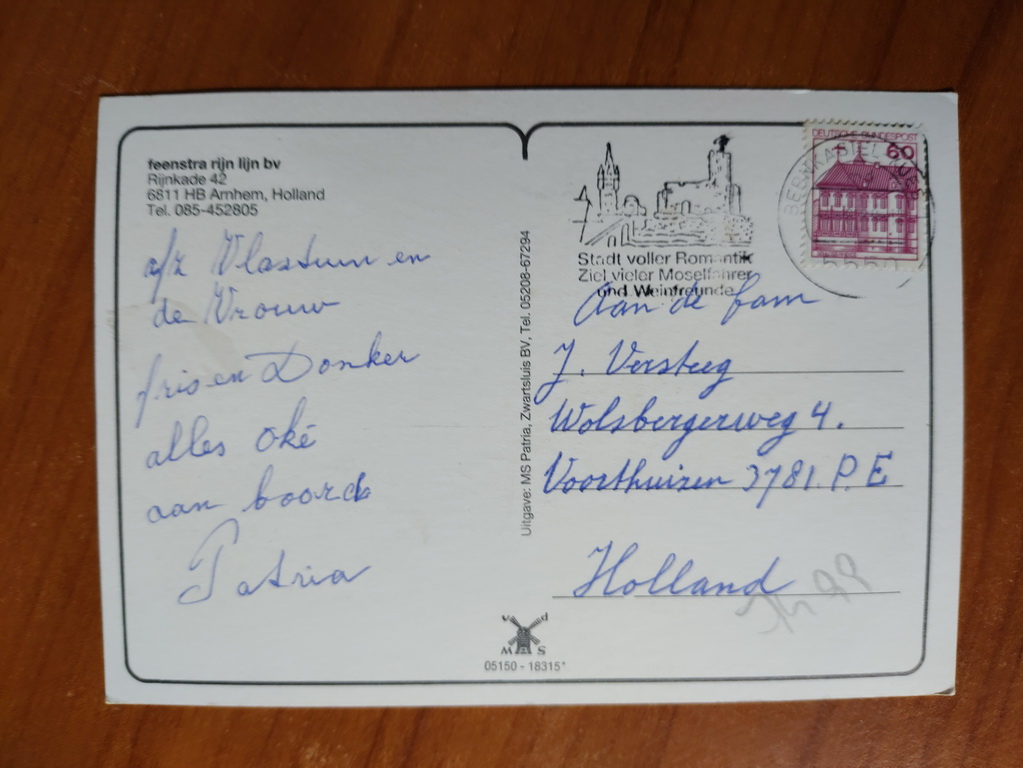 feenstra rijn lijn bv
Rijnkade 42
6811 HB Arnhem, Holland
Tel. 085-452805
afz Vlastuin en
de Vrouw
fris en Donker
alles oké
aan boord
Patria
Uitgave: MS Patria, Zwartsluis BV, Tel. 05208-67294
Stadt voller Romantik
Ziel vieler Moselfahrer
und Weinfreunde
DEUTSCHE BUNDESPOST
60
BERNKASTEL-KUES
5550
Aan de fam
J. Versteeg
Wolsbergerweg 4.
Voorthuizen 3781. P. E
Holland
v d
M S
05150 - 18315*